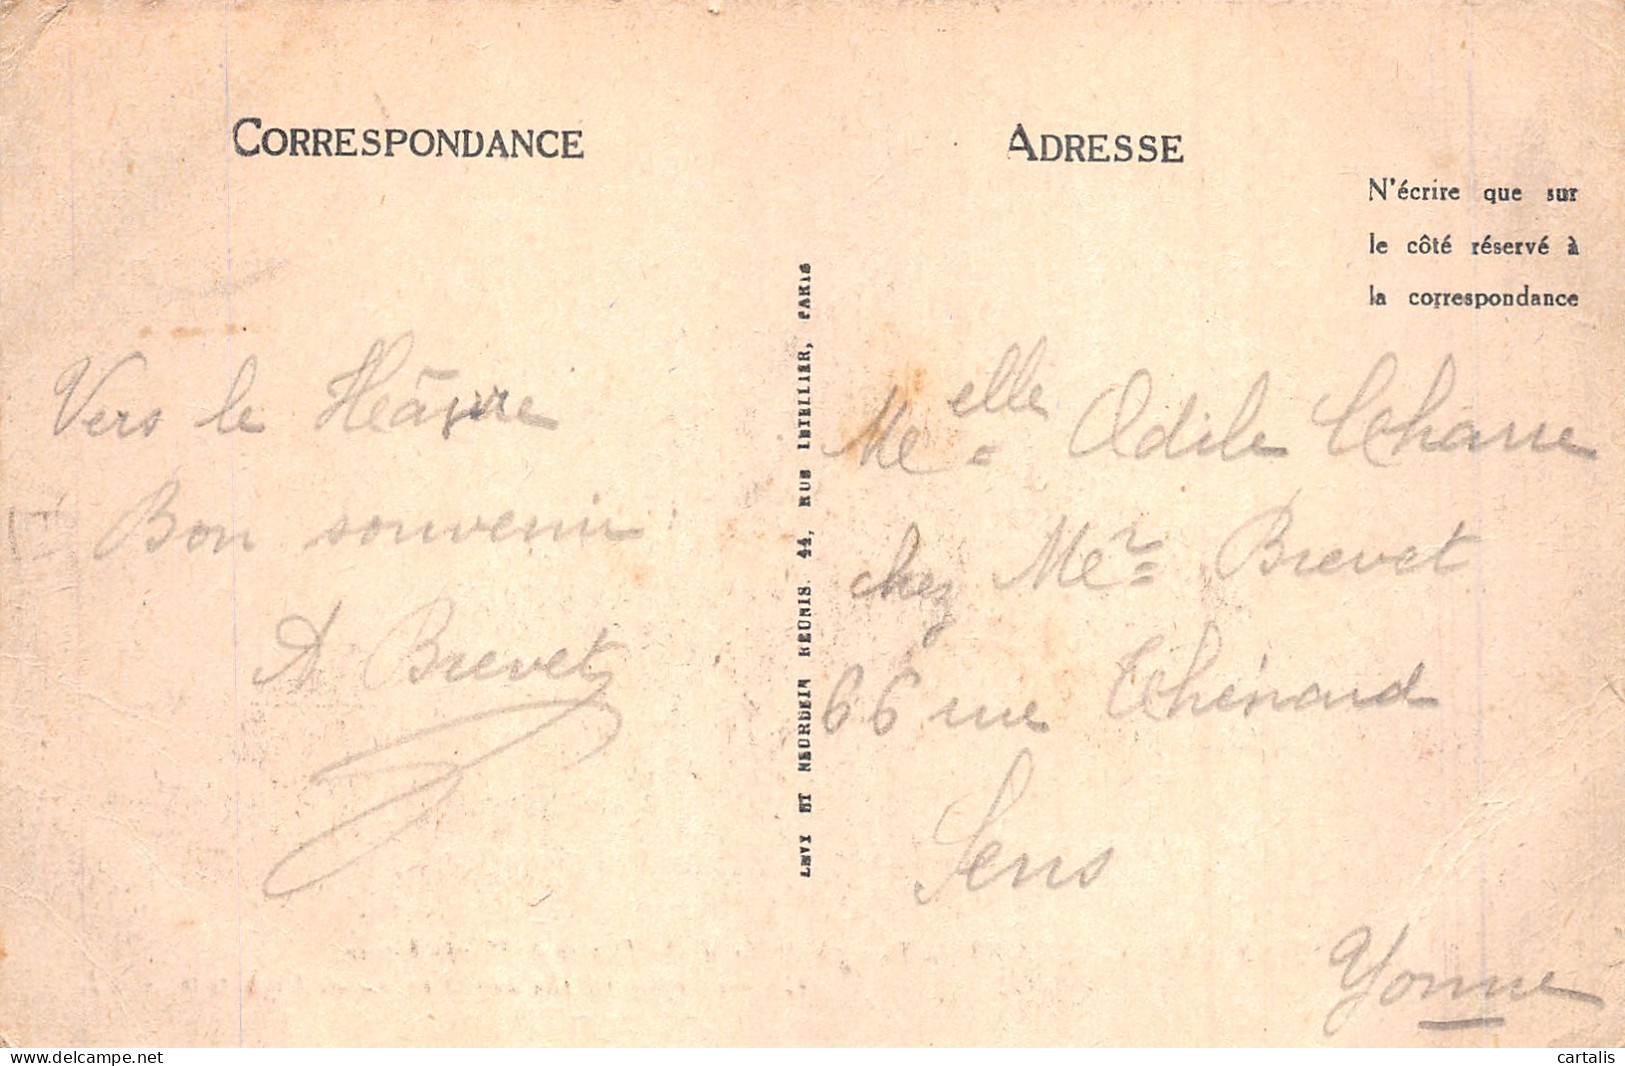 CORRESPONDANCE
Vers le Hâvre
Bon souvenir
A Brevet
LEVY ET NEURDEIN REUNIS. 44, RUE LETELLIER, PARIS
ADRESSE
N'écrire que sur
le côté réservé à
la correspondance
Melle Odile
chez Mer Brevet
66 rue Thénard
Sens
Yonne
www.delcampe.net
cartalis